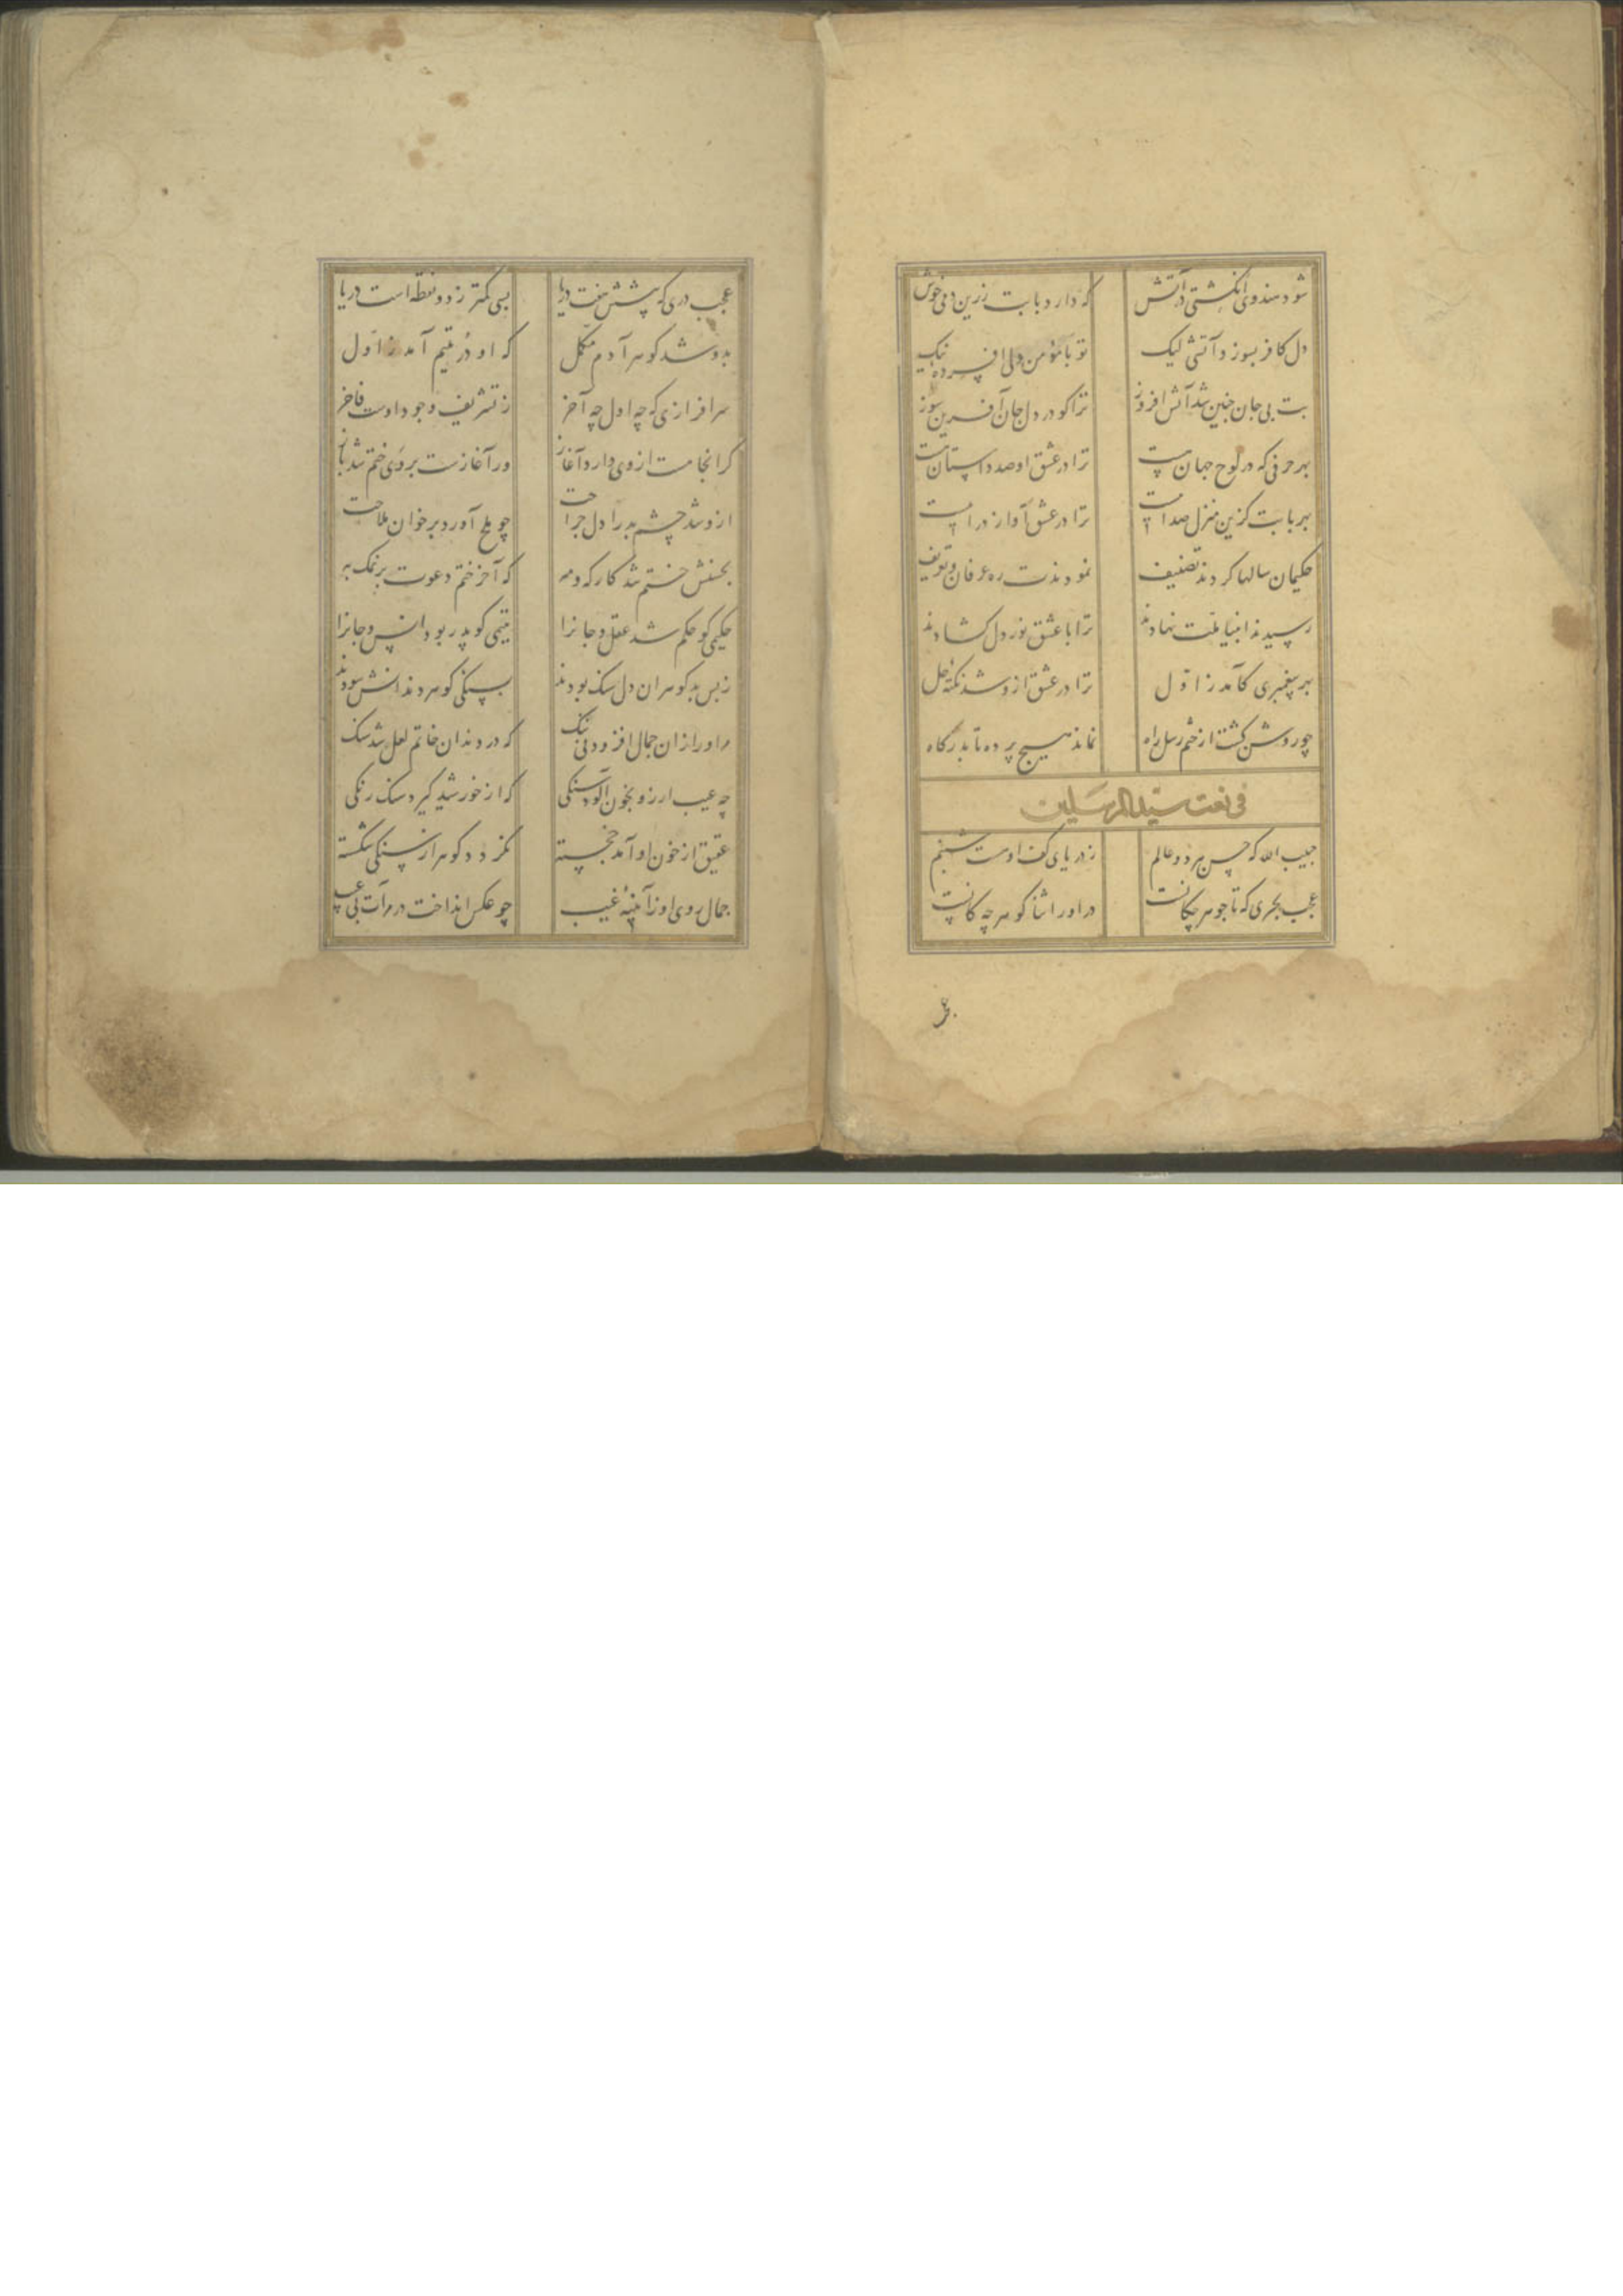 شود هندوی انگشتی در آتش که دارد با بت زرین دمی خوش
دل کافر بسوز و آتشی لیک تو با مؤمن دلی افسرده نیک
بت بی جان چنین شد آتش افروز ترا کو در دل جان آفرین سوز
بهر حرفی که در لوح جهانست ترا در عشق او صد داستانست
بهر بابت کزین منزل صداست ترا در عشق آواز دراست
حکیمان سالها کردند تصنیف نمودندت ره عرفان و تعریف
رسیدند انبیا ملت نهادند ترا با عشق نور دل کشادند
بهر پیغمبری کآمد ز اول ترا در عشق ازو شد نکتهٔ حل
چو روشن کشت از ختم رسل راه نماند هیچ پرده تا بدرکاه
فی نعت سید المرسلین
حبیب الله که حسن هر دو عالم ز دریای کف اوست شبنم
عجب بحری که تا جوهر در او را شنا کوهر چه
عجب دری که پیشش هفت دریا بسی کمتر ز دو نقطه است دریا
بدو شد کوهر آدم مکمل که او در یتیم آمد ز اول
سرافرازی که چه اول چه آخر ز تشریف وجود اوست فاخر
کر انجامست ازوی دارد آغاز ور آغازست بروی ختم شد باز
ازو شد چشم بد را دل جراحت چو ملح آورد بر خوان ملاحت
بحسنش ختم شد کار که و مه که آخر ختم دعوت بر نمک به
حکیمی کو حکم شد عقل و جانرا یتیمی کو پدر بود انس و جانرا
ز بس بدکوهران دل سنک بودند بسنکی کوهر دندانش سودند
مر او را زان جمال افزود بی نک که در دندان خاتم لعل شد سنک
چه عیب ار زو بخون آلود سنکی که از خورشید کیرد سنک رنکی
عقیق از خون او آمد خجسته نکردد کوهر از سنکی شکسته
جمال روی او ز آیینهٔ غیب چو عکس انداخت در مرآت بی عیب